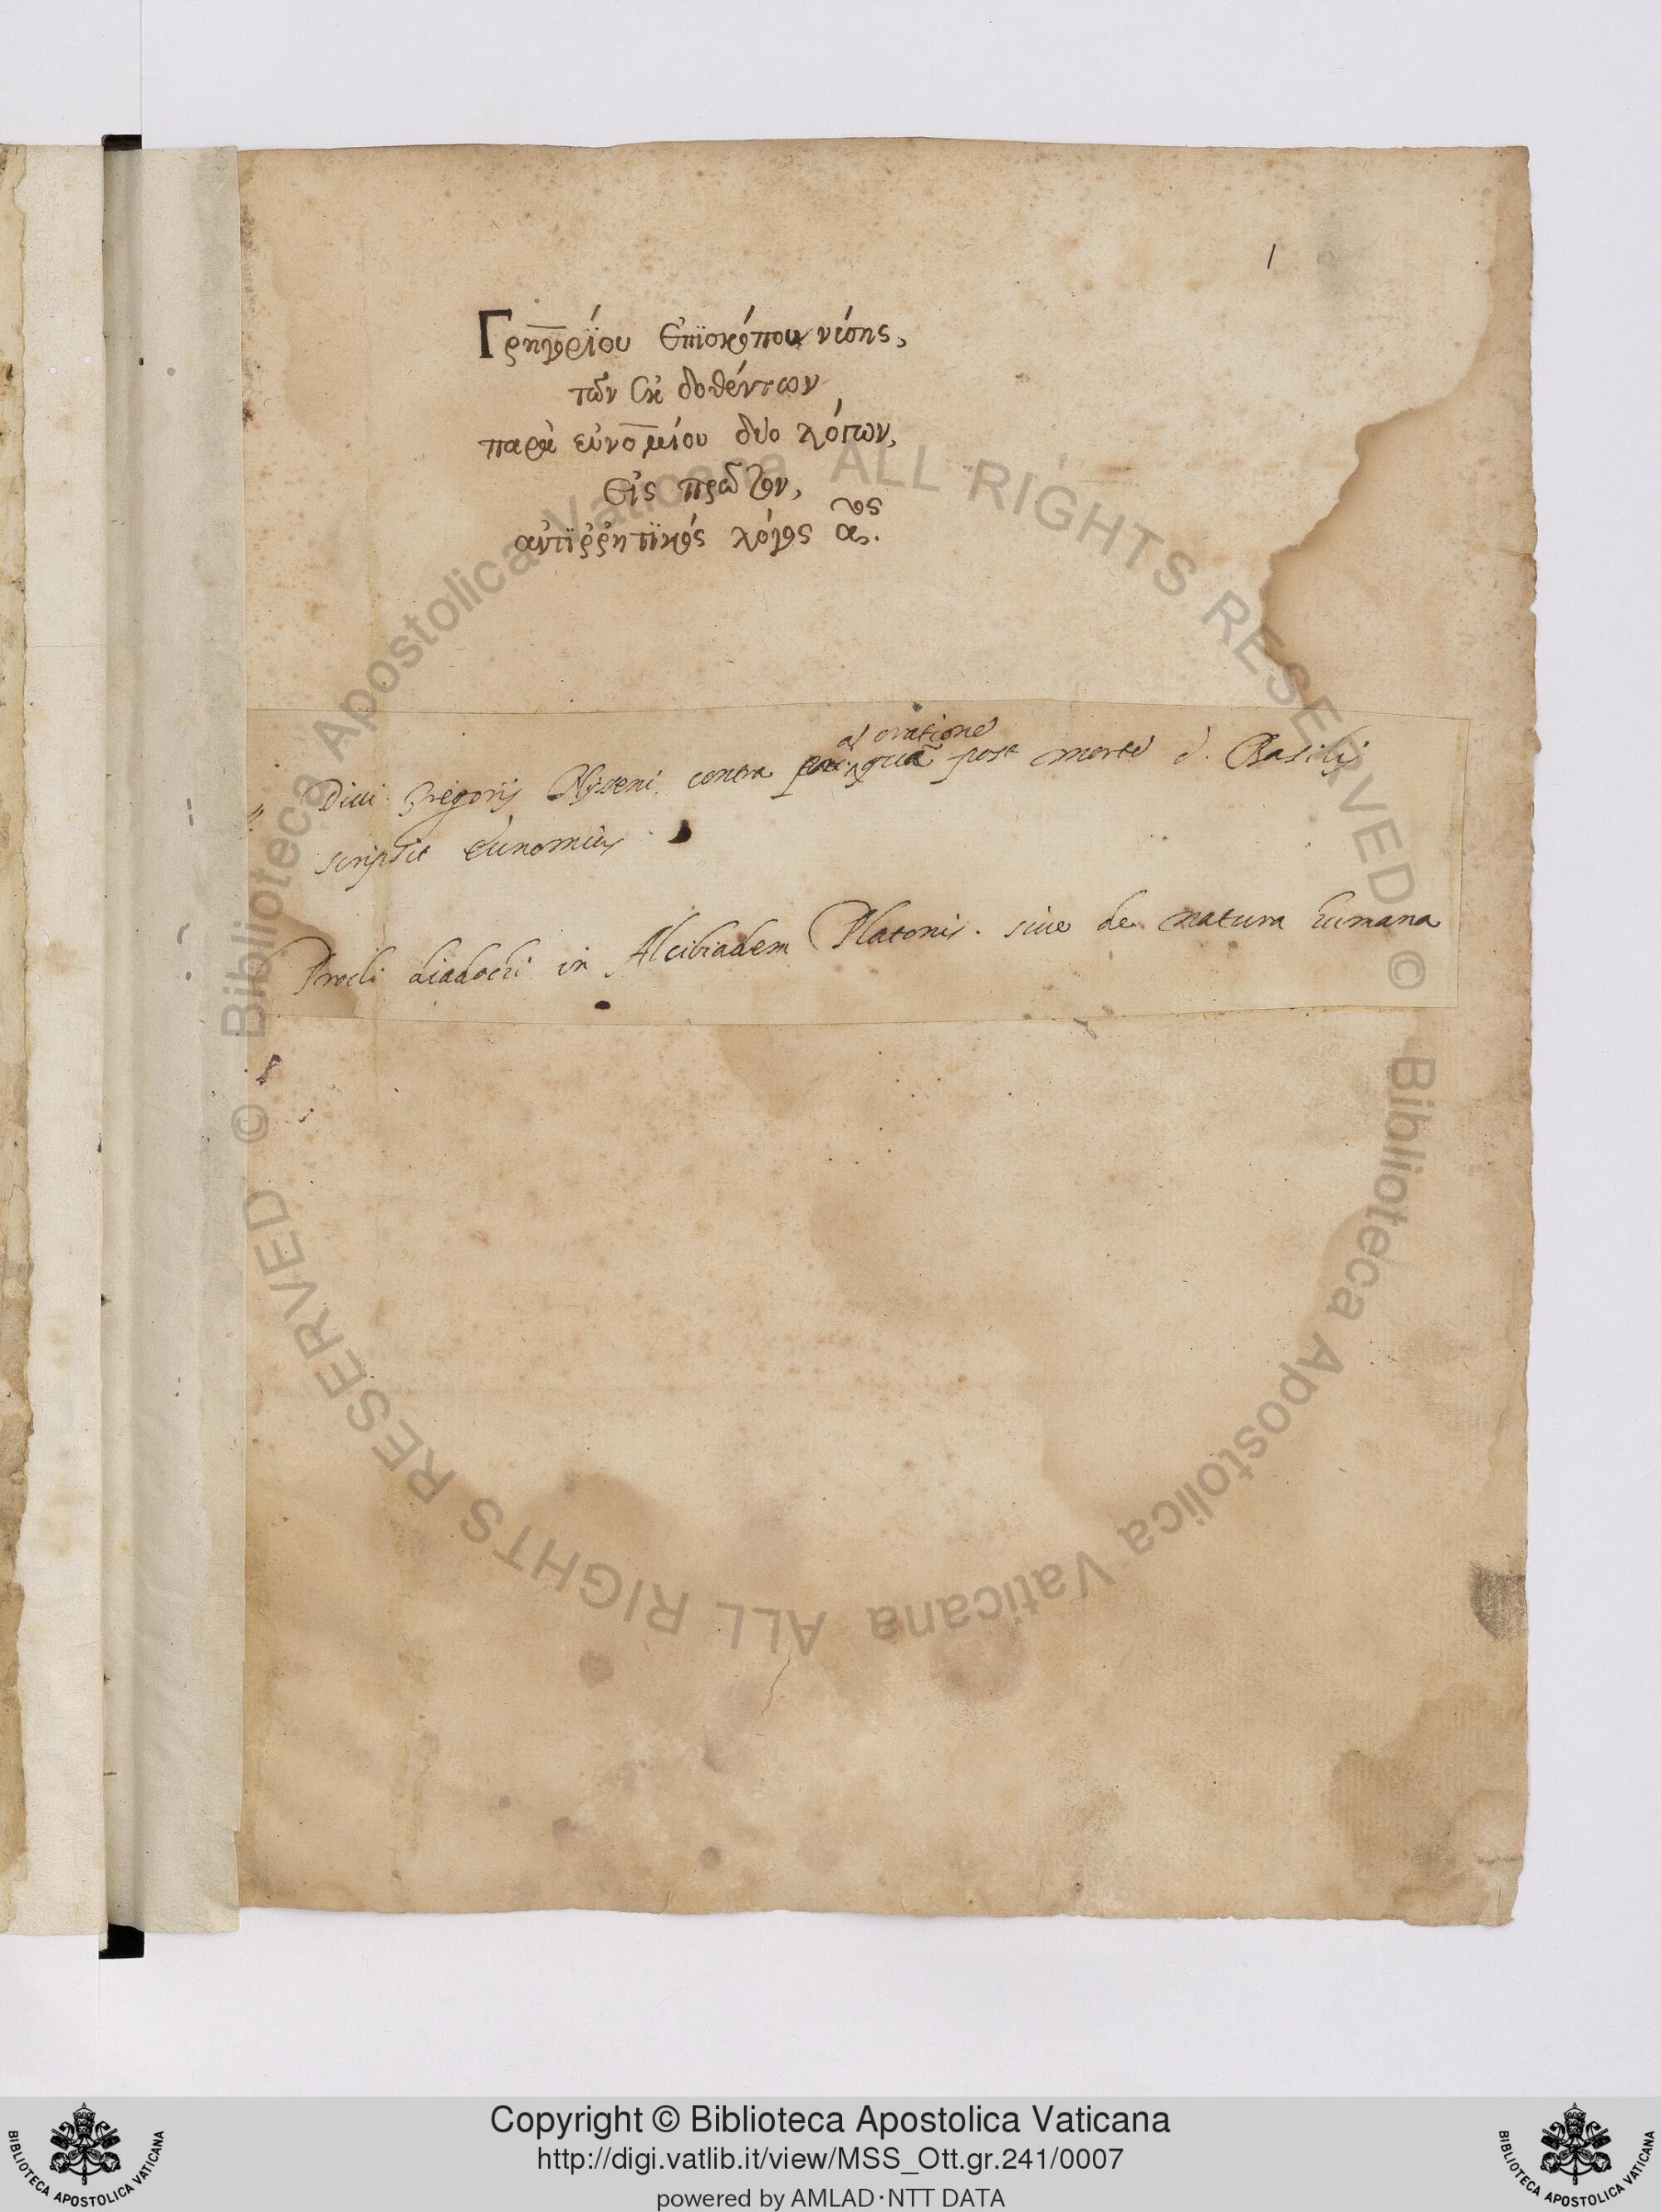 1
Γρηγορίου ἐπϊσκόπου νύσης,
τῶν ἐκ δοθέντων
παρὰ εὐνομίου δύο λόγων,
εἰς πρῶτον,
ἀντϊῤῥητϊκός λόγος α.ος
al oratione
Diui Gregorij Nysseni contra quã post morte d. Basilij
scripsit Eunomius
Procli diadochi in Alcibiadem Platonis. siue de natura humana
© Biblioteca Apostolica Vaticana ALL RIGHTS RESERVED
© Biblioteca Apostolica Vaticana ALL RIGHTS RESERVED
Copyright © Biblioteca Apostolica Vaticana
http://digi.vatlib.it/view/MSS_Ott.gr.241/0007
powered by AMLAD·NTT DATA
BIBLIOTECA APOSTOLICA VATICANA
BIBLIOTECA APOSTOLICA VATICANA